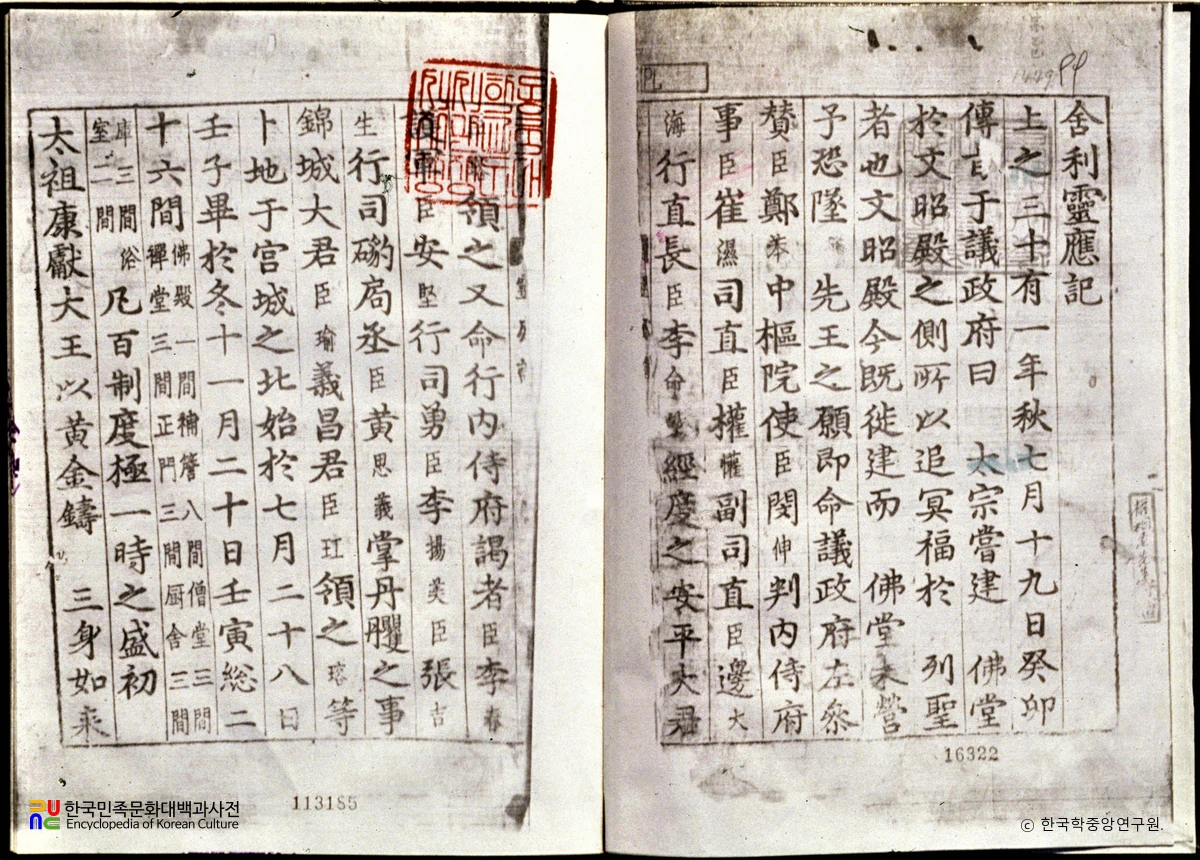 舍利靈應記
上之三十有一年秋七月十九日癸卯
傳旨于議政府曰 太宗嘗建 佛堂
於文昭殿之側所以追冥福於 列聖
者也文昭殿今既徙建而 佛堂未營
予恐墜 先王之願即命議政府左叅
賛臣鄭苯中樞院使臣閔伸判内侍府
事臣崔濕司直臣權懽副司直臣邊大
海行直長臣李命敏經度之安平大君
領之又命行内侍府謁者臣李春
臣安堅行司勇臣李揚美臣張吉
生行司㔉局丞臣黄思義掌丹雘之事
錦城大君臣瑜義昌君臣玒領之瑢等
卜地于宫城之北始於七月二十八日
壬子畢於冬十一月二十日壬寅総二
十六間佛殿一間補簷八間僧堂三間禪堂三間正門三間厨舍三間
庫三間浴室二間凡百制度極一時之盛初
太祖康獻大王以黄金鑄 三身如来
16322
113185
한국민족문화대백과사전
Encyclopedia of Korean Culture
© 한국학중앙연구원.